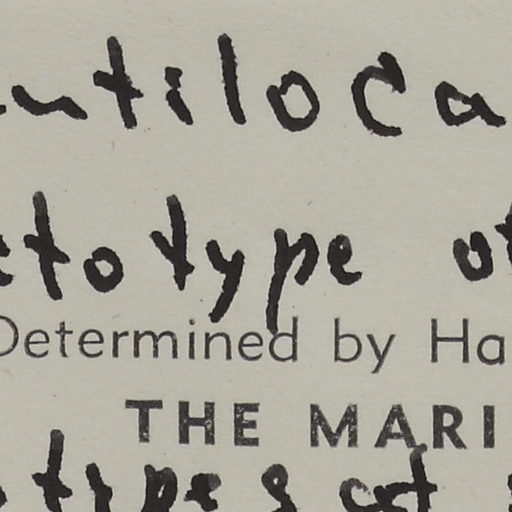 utiloca
ctotype of
Determined by Ha
THE MARI
types at